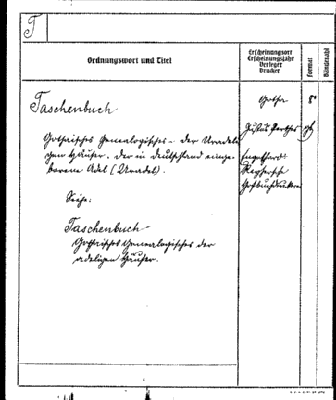 T
Ordnungswort und Titel
Erscheinungsort
Erscheinungsjahr
Verleger
Drucker
Format
Bändezahl
Taschenbuch
Gotha
8°
Gothaisches Genealogisches - der Uradeli-
gen Häuser. Der in Deutschland einge-
borene Adel (Uradel).
Justus Perthes
Engelhard-
Reyhersche
Hofbuchdruckerei
Siehe:
Taschenbuch
Gothaisches Genealogisches der
adeligen Häuser.